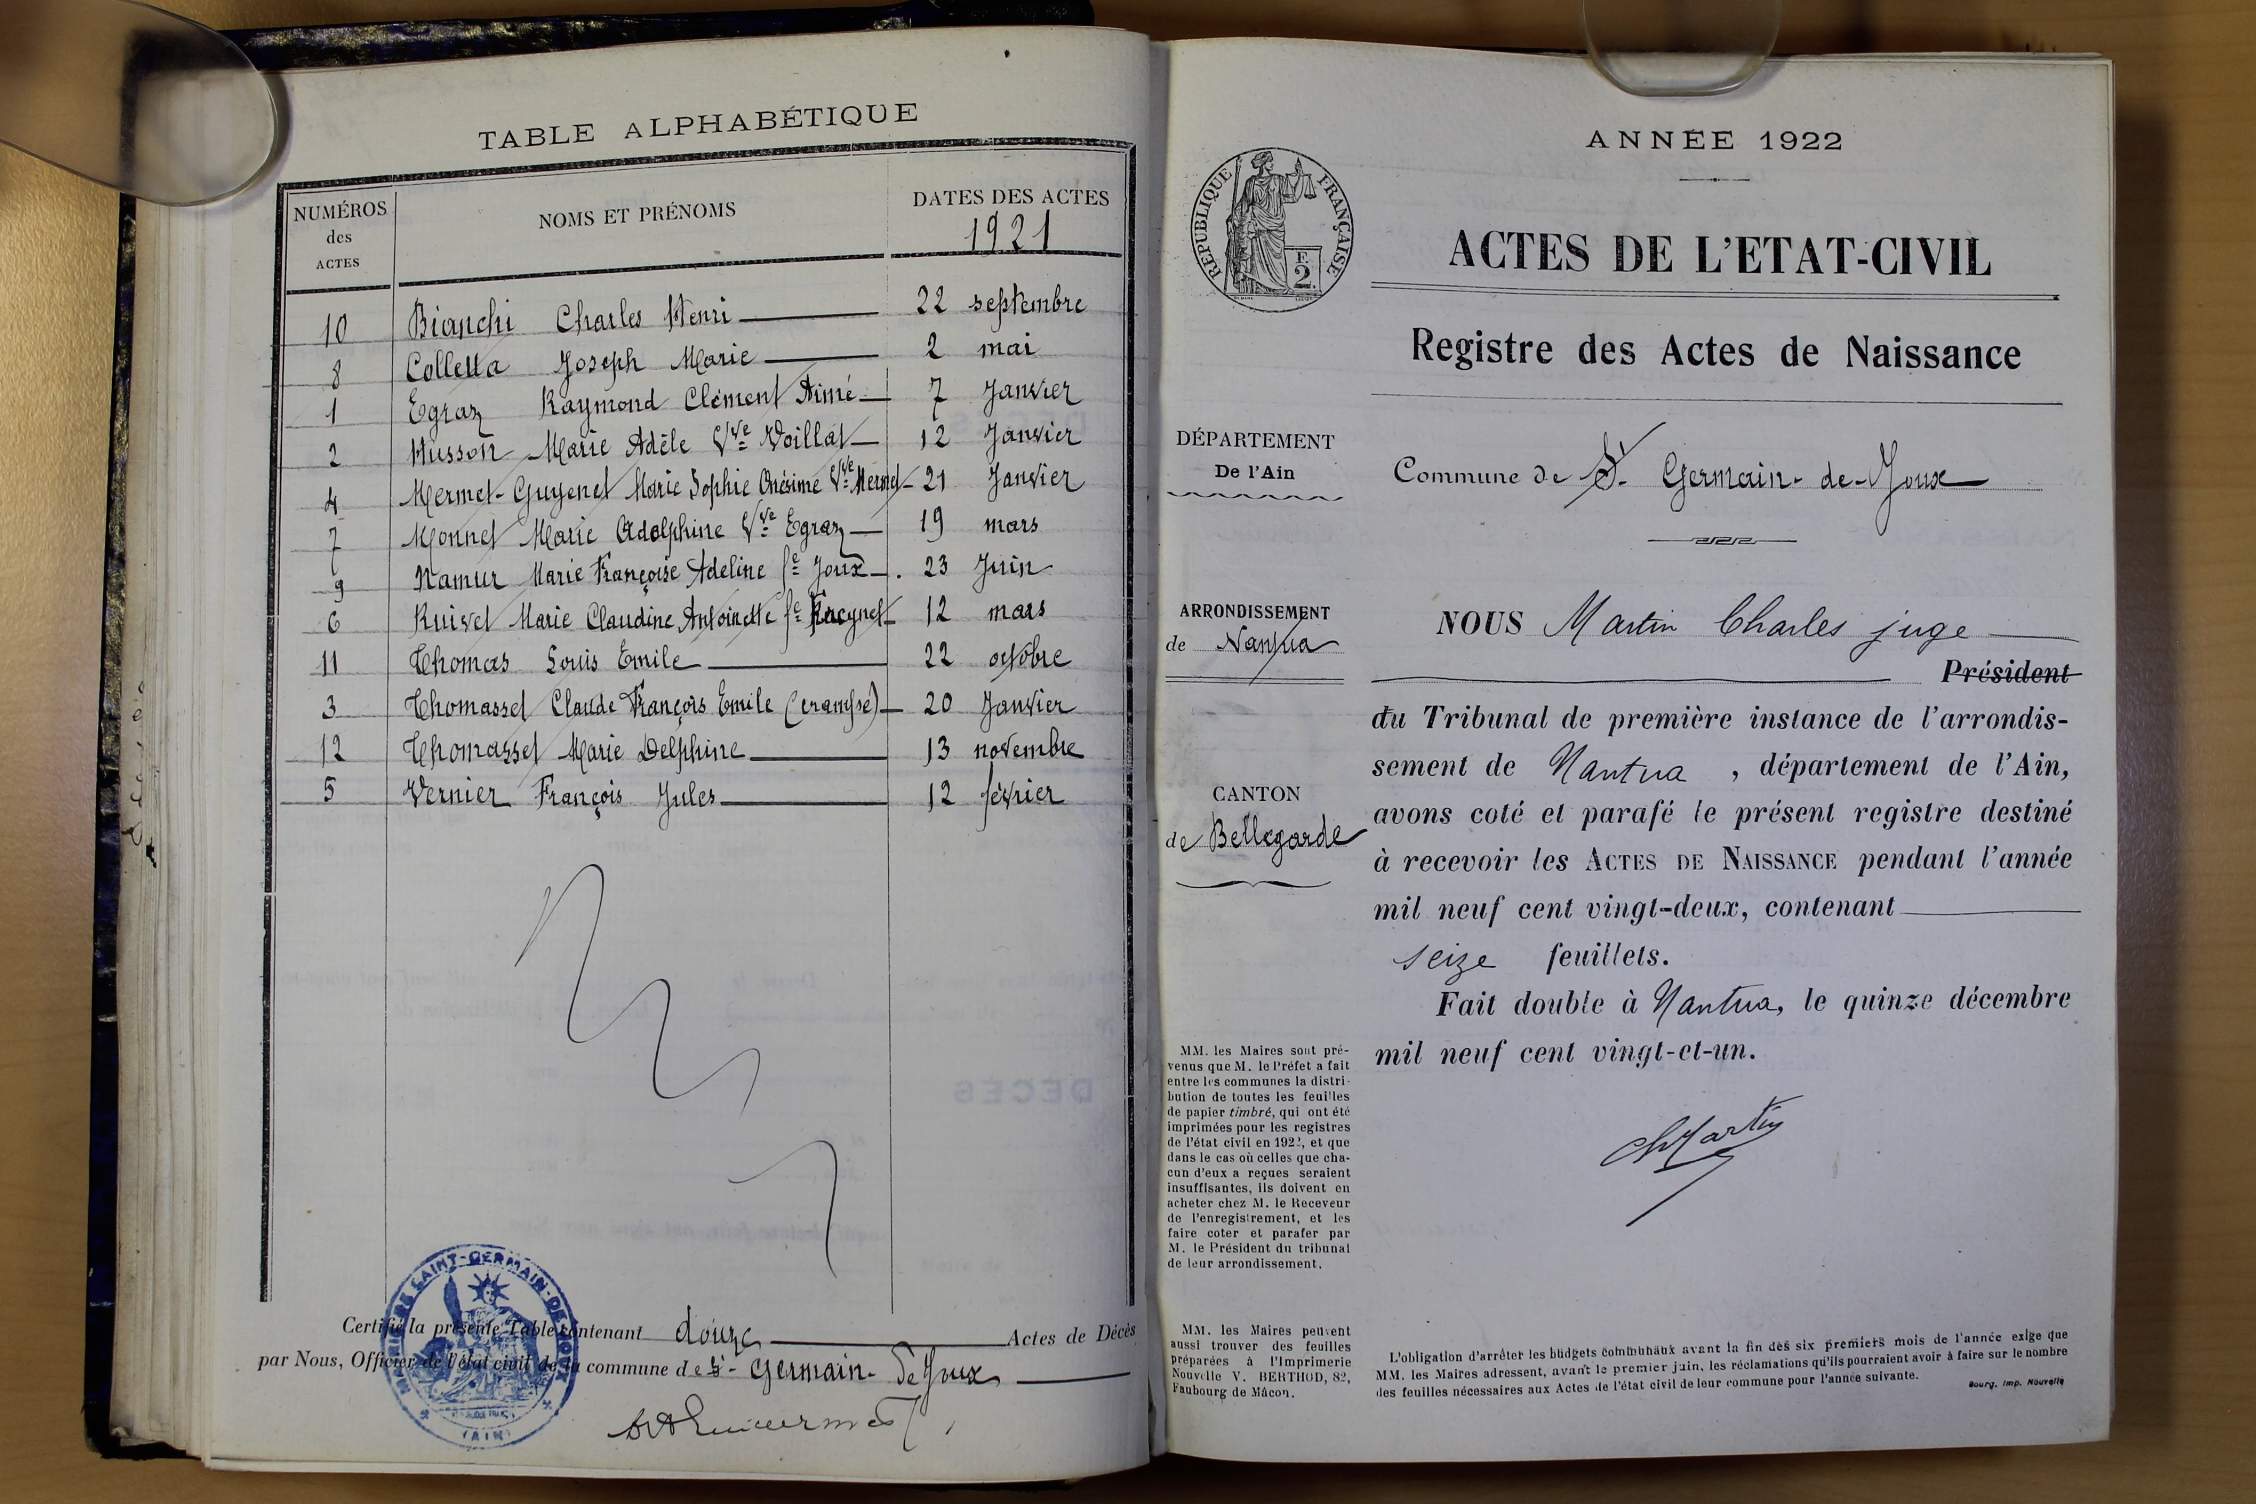 TABLE ALPHABÉTIQUE
NUMÉROS des ACTES
NOMS ET PRÉNOMS
DATES DES ACTES
1921
10 Bianchi Charles Henri 22 septembre
8 Colletta Joseph Marie 2 mai
1 Egraz Raymond Clément Aimé 7 Janvier
2 Husson Marie Adèle Vve Voillat 12 Janvier
4 Mermet-Guyenet Marie Sophie Onésime Vve Mermet 21 Janvier
7 Monnet Marie Adolphine Vve Egraz 19 mars
9 Namur Marie Françoise Adeline fe Joux 23 Juin
6 Ruivet Marie Claudine Antoinette fe 12 mars
11 Thomas Louis Emile 22 octobre
3 Thomasset Claude François Emile 20 Janvier
12 Thomasset Marie Delphine 13 novembre
5 Vernier François Jules 12 février
Certifié la présente Table contenant douze Actes de Décès
par Nous, Officier de l'état civil de la commune de St-Germain-de Joux
MAIRIE DE SAINT-GERMAIN-DE-JOUX
(AIN)
ANNÉE 1922
RÉPUBLIQUE FRANÇAISE
F. 2
ACTES DE L'ETAT-CIVIL
Registre des Actes de Naissance
DÉPARTEMENT
De l'Ain
Commune de St Germain-de-Joux
ARRONDISSEMENT
de Nantua
CANTON
de Bellegarde
NOUS Martin Charles juge
Président
du Tribunal de première instance de l'arrondis-
sement de Nantua, département de l'Ain,
avons coté et parafé le présent registre destiné
à recevoir les ACTES DE NAISSANCE pendant l'année
mil neuf cent vingt-deux, contenant
seize feuillets.
Fait double à Nantua, le quinze décembre
mil neuf cent vingt-et-un.
ChMartin
MM. les Maires sont pré-
venus que M. le Préfet a fait
entre les communes la distri-
bution de toutes les feuilles
de papier timbré, qui ont été
imprimées pour les registres
de l'état civil en 1922, et que
dans le cas où celles que cha-
cun d'eux a reçues seraient
insuffisantes, ils doivent en
acheter chez M. le Receveur
de l'enregistrement, et les
faire coter et parafer par
M. le Président du tribunal
de leur arrondissement.
MM. les Maires peuvent
aussi trouver des feuilles
préparées à l'Imprimerie
Nouvelle V. BERTHOD, 82,
Faubourg de Mâcon.
L'obligation d'arrêter les budgets communaux avant la fin des six premiers mois de l'année exige que
MM. les Maires adressent, avant le premier juin, les réclamations qu'ils pourraient avoir à faire sur le nombre
des feuilles nécessaires aux Actes de l'état civil de leur commune pour l'année suivante.
Bourg. Imp. Nouvelle